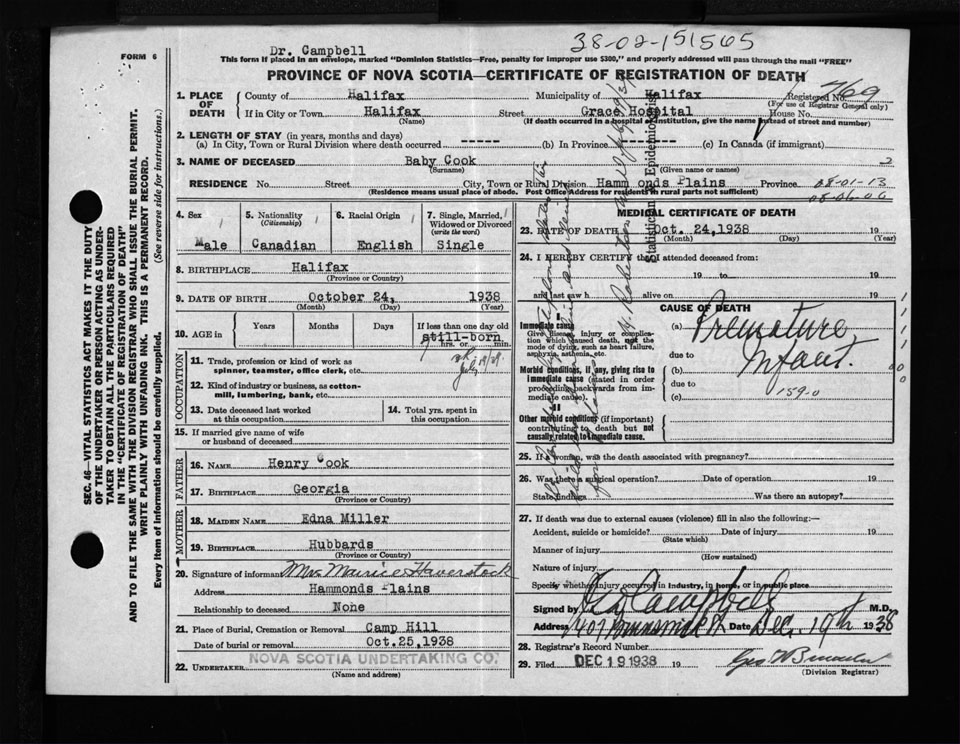 38-02-151565
FORM 6
Dr. Campbell
This form if placed in an envelope, marked "Dominion Statistics—Free, penalty for improper use $300," and properly addressed will pass through the mail "FREE"
PROVINCE OF NOVA SCOTIA—CERTIFICATE OF REGISTRATION OF DEATH
SEC. 46—VITAL STATISTICS ACT MAKES IT THE DUTY
OF THE UNDERTAKER OR PERSON ACTING AS UNDER-
TAKER TO OBTAIN ALL THE PARTICULARS REQUIRED
IN THE "CERTIFICATE OF REGISTRATION OF DEATH"
AND TO FILE THE SAME WITH THE DIVISION REGISTRAR WHO SHALL ISSUE THE BURIAL PERMIT.
WRITE PLAINLY WITH UNFADING INK. THIS IS A PERMANENT RECORD.
Every item of Information should be carefully supplied. (See reverse side for instructions.)
1. PLACE OF DEATH County of Halifax Municipality of Halifax Registered No. 769
(For use of Registrar General only)
If in City or Town Halifax Street Grace Hospital House No.
(Name) (If death occurred in a hospital or institution, give the name instead of street and number)
2. LENGTH OF STAY (in years, months and days)
(a) In City, Town or Rural Division where death occurred ----- (b) In Province ----- (c) In Canada (if immigrant)
3. NAME OF DECEASED Baby Cook 2
(Surname) (Given name or names)
RESIDENCE No. Street City, Town or Rural Division Hamm onds Plains Province 08-01-13
(Residence means usual place of abode. Post Office Address for residents in rural parts not sufficient) 08-06-06
4. Sex 5. Nationality (Citizenship) 6. Racial Origin 7. Single, Married, Widowed or Divorced (write the word)
Male Canadian English Single
8. BIRTHPLACE Halifax
(Province or Country)
9. DATE OF BIRTH October 24, 1938
(Month) (Day) (Year)
10. AGE in Years Months Days If less than one day old
still-born
hrs. or min.
OCCUPATION
11. Trade, profession or kind of work as
spinner, teamster, office clerk, etc.
12. Kind of industry or business, as cotton-
mill, lumbering, bank, etc.
13. Date deceased last worked
at this occupation
14. Total yrs. spent in
this occupation
15. If married give name of wife
or husband of deceased
FATHER
16. NAME Henry Cook
17. BIRTHPLACE Georgia
(Province or Country)
MOTHER
18. MAIDEN NAME Edna Miller
19. BIRTHPLACE Hubbards
(Province or Country)
20. Signature of informant Mrs Maurice Haverstock
Address Hammonds Plains
Relationship to deceased None
21. Place of Burial, Cremation or Removal Camp Hill
Date of burial or removal Oct.25,1938
22. UNDERTAKER NOVA SCOTIA UNDERTAKING CO.
(Name and address)
MEDICAL CERTIFICATE OF DEATH
23. DATE OF DEATH Oct. 24,1938 19
(Month) (Day) (Year)
24. I HEREBY CERTIFY that I attended deceased from:
19 to 19
and last saw h alive on 19
CAUSE OF DEATH
Immediate cause
Give disease, injury or complica-
tion which caused death, not the
mode of dying, such as heart failure,
asphyxia, asthenia, etc.
(a) Premature
due to
Morbid conditions, if any, giving rise to
immediate cause (stated in order
proceeding backwards from im-
mediate cause).
(b) Infant.
due to
(c) 159-0
Other morbid conditions (if important)
contributing to death but not
causally related to immediate cause.
25. If a woman, was the death associated with pregnancy?
26. Was there a surgical operation? Date of operation 19
State findings Was there an autopsy?
27. If death was due to external causes (violence) fill in also the following:—
Accident, suicide or homicide? Date of injury 19
(State which)
Manner of injury
(How sustained)
Nature of injury
Specify whether injury occurred in industry, in home, or in public place
Signed by Geo Campbell M.D.
Address 407 Brunswick St Date Dec. 19th 1938
28. Registrar's Record Number
29. Filed DEC 19 1938 19
(Division Registrar)
Statistician Epidemiologist